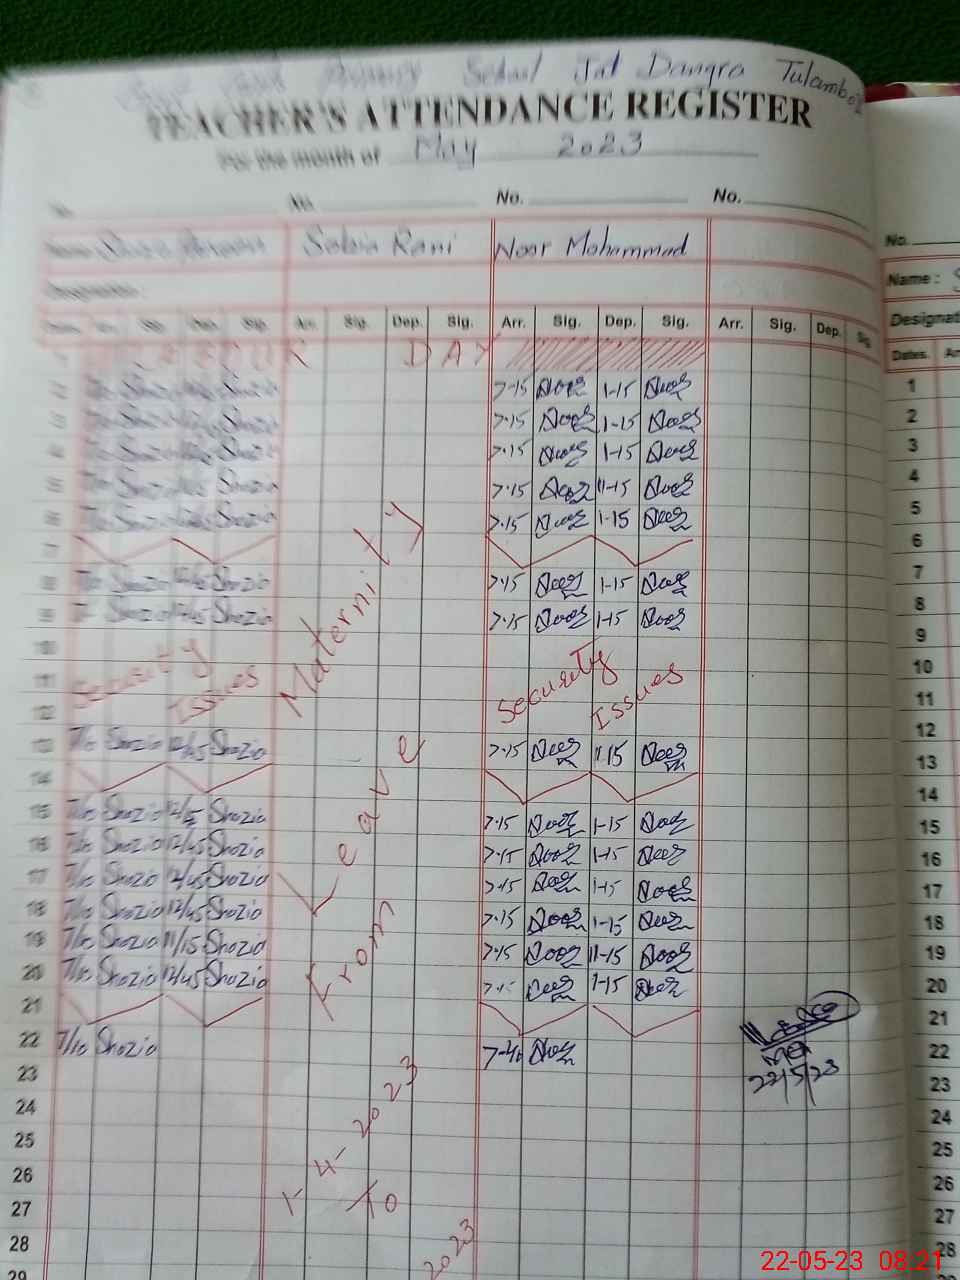 Primary School Jat Dangra Tulamba
TEACHER'S ATTENDANCE REGISTER
For the month of May 2023
No. No. No.
Name: Shazia Perveen Sobia Rani Noor Mohammad
Designation :
Dates. Arr. Sig. Dep. Sig. Arr. Sig. Dep. Sig. Arr. Sig. Dep. Sig. Arr. Sig. Dep. Sig.
1 LABOUR DAY
2 Shazia Shazia 7-15 Noor 1-15 Noor
3 Shazia Shazia 7-15 Noor 1-15 Noor
4 Shazia Shazia 7-15 Noor 1-15 Noor
5 Shazia Shazia 7-15 Noor 11-15 Noor
6 Shazia Shazia 7-15 Noor 1-15 Noor
7
8 7/10 Shazia 12/45 Shazia 7-15 Noor 1-15 Noor
9 Shazia 12/45 Shazia 7-15 Noor 1-15 Noor
10
11 Security Issues Security Issues
12
13 7/10 Shazia 12/45 Shazia 7-15 Noor 1-15 Noor
14
15 7/10 Shazia 12/45 Shazia 7-15 Noor 1-15 Noor
16 7/10 Shazia 12/45 Shazia 7-15 Noor 1-15 Noor
17 7/10 Shazia 12/45 Shazia 7-15 Noor 1-15 Noor
18 7/10 Shazia 12/45 Shazia 7-15 Noor 1-15 Noor
19 7/10 Shazia 11/15 Shazia 7-15 Noor 11-15 Noor
20 7/10 Shazia 12/45 Shazia 7-15 Noor 1-15 Noor
21
22 7/10 Shazia Noor
23
24
25
26
27
28
29
Maternity
Leave
From
1-4-2023
To
2023
MEA
22/5/23
No.
Name :
Designat
Dates. Ar
1
2
3
4
5
6
7
8
9
10
11
12
13
14
15
16
17
18
19
20
21
22
23
24
25
26
27
28
22-05-23 08:21